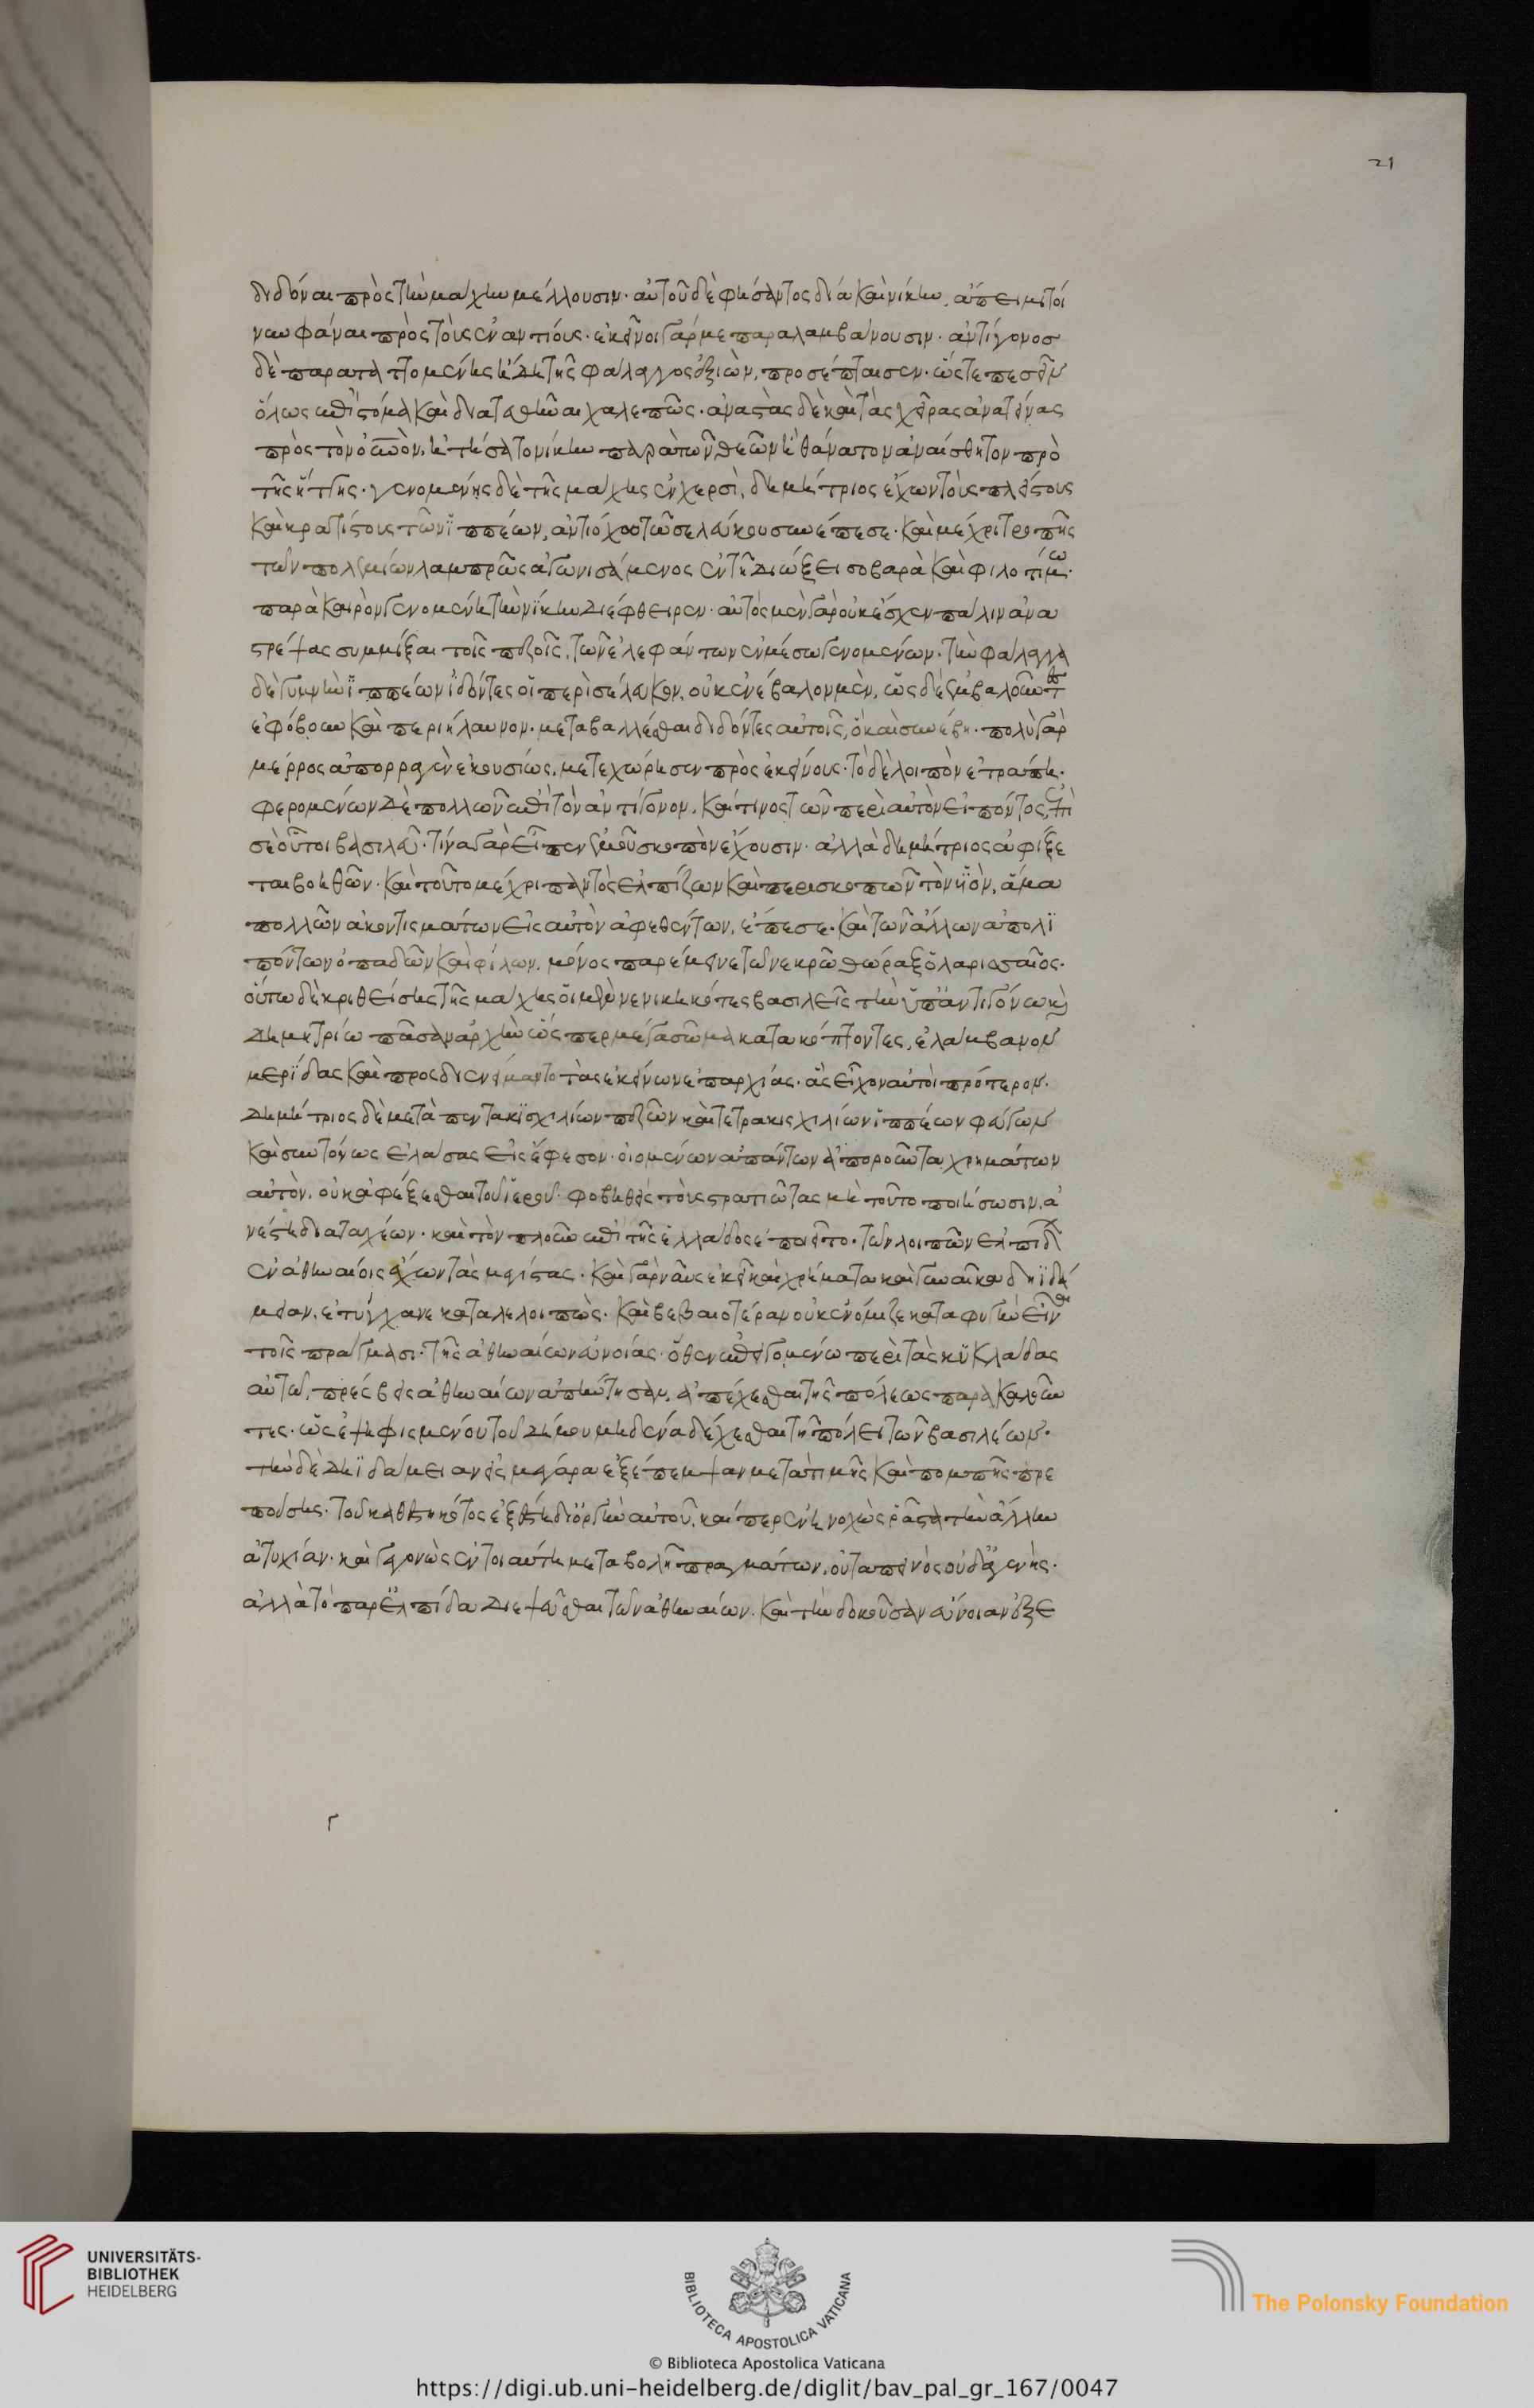 διδόναι πρὸς τὴν μάχην μέλλουσιν· αὐτοῦ δὲ φήσαντος δία καὶ νίκην, ἄπειμι τοί
νυν φάναι πρὸς τοὺς ἐναντίους· ἐκεῖνοι γάρ με παραλαμβάνουσιν· ἀντίγονος
δὲ παραταττομένης ἤδη τῆς φάλαγγος ἐξιὼν, προσέπταισεν· ὥστε πεσεῖν
ὅλως ἐπὶ στόμα καὶ διαταθῆναι χαλεπῶς· ἀναστὰς δὲ καὶ τὰς χεῖρας ἀνατείνας
πρὸς τὸν οὐνὸν, ἠτήσατο νίκην παρὰ τῶν θεῶν ἢ θάνατον ἀναίσθητον πρὸ
τῆς ἥττης· γενομένης δὲ τῆς μάχης ἐν χερσὶ, δημήτριος ἔχων τοὺς πλείστους
καὶ κρατίστους τῶν ἱππέων, ἀντιόχω τῶ σελεύκου συνέπεσε· καὶ μέχρι τροπῆς
τῶν πολεμίων λαμπρῶς ἀγωνισάμενος ἐν τῆ διώξει σοβαρᾶ καὶ φιλοτίμω·
παρὰ καιρὸν γενομένη τὴν νίκην διέφθειρεν· αὐτὸς μὲν γὰρ οὐκ ἔσχεν πάλιν ἀνα
στρέψας συμμίξαι τοῖς πεζοῖς, τῶν ἐλεφάντων ἐν μέσω γενομένων· τὴν φάλαγγα
δὲ γυμνὴν ἱππέων ἰδόντες οἱ περὶ σέλευκον, οὐκ ἐνέβαλον μὲν, ὡς δὲ ἐμβαλοῦντες
ἐφόβουν καὶ περιήλαυνον· μεταβάλλεσθαι διδόντες αὐτοῖς, ὃ καὶ συνέβη· πολὺ γὰρ
μέρρος ἀπορραγὲν ἑκουσίως, μετεχώρησεν πρὸς ἐκείνους· τὸ δὲ λοιπὸν ἐτράπη·
φερομένων δὲ πολλῶν ἐπὶ τὸν ἀντίγονον, καί τινος τῶν περὶ αὐτὸν εἰπόντος, ἐπὶ
σὲ οὗτοι βασιλεῦ· τίνα γὰρ εἶπεν ἐμοῦ σκοπὸν ἔχουσιν· ἀλλὰ δημήτριος ἀφίξε
ται βοηθῶν· καὶ τοῦτο μέχρι παντὸς ἐλπίζων καὶ περισκοπῶν τὸν υἱὸν, ἅμα
πολλῶν ἀκοντισμάτων εἰς αὐτὸν ἀφεθέντων, ἔπεσε· καὶ τῶν ἄλλων ἀπολϊ
πόντων ὀπαδῶν καὶ φίλων, μόνος παρέμεινε τῶ νεκρῶ θώραξ ὁ λαρισσαῖος·
οὕτω δὲ κριθείσης τῆς μάχης οἱ μὲν νενικηκότες βασιλεῖς τὴν ὑπ' ἀντιγόνω καὶ
δημητρίω πᾶσαν ἀρχὴν ὥσπερ μέγα σῶμα κατακόπτοντες, ἐλάμβανον
μερίδας καὶ προσδιενείμαντο τὰς ἐκείνων ἐπαρχίας· ἃς εἶχον αὐτοὶ πρότερον·
δημήτριος δὲ μετὰ πεντακϊσχιλίων πεζῶν καὶ τετρακισχιλίων ἱππέων φεύγων
καὶ συντόνως ἐλάσας εἰς ἔφεσον· οἰομένων ἁπάντων ἀποροῦντα χρημάτων
αὐτὸν, οὐκ ἀφέξεσθαι τοῦ ἱεροῦ· φοβηθεὶς τοὺς στρατιώτας μὴ τοῦτο ποιήσωσιν, ἀ
νέστη διαταχέων· καὶ τὸν πλοῦν ἐπὶ τῆς ἑλλάδος ἐποιεῖτο· τῶν λοιπῶν ἐλπίδων
ἐν ἀθηναίοις ἔχων τὰς μεγίστας· καὶ γὰρ ναῦς ἐκεῖ καὶ χρήματα καὶ γυναῖκα δηϊδά
μειαν, ἐτύγχανε καταλελοιπὼς· καὶ βεβαιοτέραν οὐκ ἐνόμιζε καταφυγὴν εἶναι
τοῖς πράγμασι· τῆς ἀθηναίων εὐνοίας· ὅθεν ἐπειγομένω περὶ τὰς κυκλάδας
αὐτῶ, πρέσβεις ἀθηναίων ἀπήντησαν, ἀπέχεσθαι τῆς πόλεως παρακαλοῦν
τες· ὡς ἐψηφισμένου τοῦ δήμου μηδένα δέχεσθαι τῆ πόλει τῶν βασιλέων·
τὴν δὲ δηϊδάμειαν εἰς μέγαρα ἐξέπεμψαν μετὰ τιμῆς καὶ πομπῆς πρε
πούσης· τοῦ καθεστηκότος ἐξέστη δι' ὀργὴν αὑτοῦ, καίπερ ἐνηνοχὼς ῥᾶστα τὴν ἄλλην
ἀτυχίαν· καὶ γεγονὼς ἐν τοιαύτη μεταβολῆ πραγμάτων, οὐ ταπεινὸς οὐδ' ἀγενὴς·
ἀλλὰ τὸ παρ' ἐλπίδα διεψεῦσθαι τῶν ἀθηναίων· καὶ τὴν δοκοῦσαν εὔνοιαν ἐξε
21
UNIVERSITÄTS-
BIBLIOTHEK
HEIDELBERG
BIBLIOTECA APOSTOLICA VATICANA
The Polonsky Foundation
© Biblioteca Apostolica Vaticana
https://digi.ub.uni-heidelberg.de/diglit/bav_pal_gr_167/0047